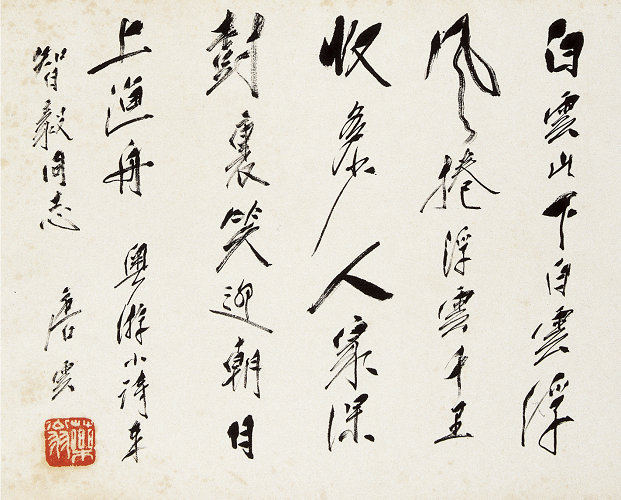 白雲山下白雲浮
風捲浮雲千里
收多少人家深
樹裏笑迎朝日
上漁舟 粵游小詩奉
智毅同志 唐雲
藥翁